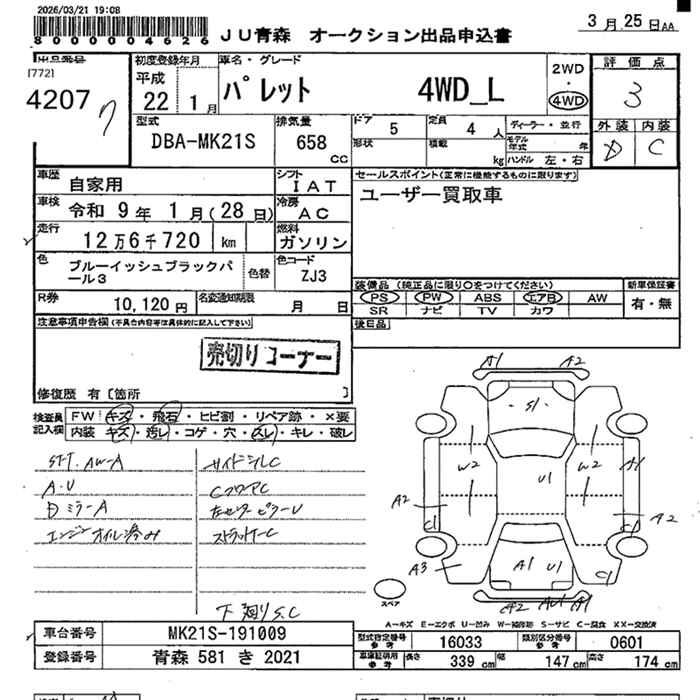 2026/03/21 19:08
8000004626
JU青森 オークション出品申込書
3月25日AA
出品番号
[772]
4207
初度登録年月
平成
22 1月
車名・グレード
パレット 4WD_L
2WD
・
4WD
評価点
3
型式
DBA-MK21S
排気量
658
CC
ドア
5
形状
定員
4人
積載
kg
ディーラー・並行
モデル年式 年
ハンドル 左・右
外装 内装
D C
車歴
自家用
シフト
IAT
セールスポイント(正常に機能するものに限ります)
ユーザー買取車
車検
令和 9年 1月(28日)
冷房
AC
走行
12万6千720 km
燃料
ガソリン
色
ブルーイッシュブラックパール3
色替
色コード
ZJ3
装備品 (純正品に限り○をつけてください)
PS PW ABS エアB AW
SR ナビ TV カワ
新車保証書
有・無
R券
10,120円
名変通知期限
月 日
後日品
注意事項申告欄(不具合内容等は具体的に記入して下さい)
売切りコーナー
修復歴 有[箇所 ]
検査員記入欄
FW キズ・飛石・ヒビ割・リペア跡・×要
内装 キズ・汚レ・コゲ・穴・スレ・キレ・破レ
ST-T. AW-A
A・U
DミラーA
エンジンオイル滲み
サイドシルC
CフロアC
左センターピラーU
ストラットC
下廻りS.C
A1 A2
S1
W2 U1 W2
A1
A2 C1 C1 A2
A3 A1 U1 C1
A2 AU1 A1
スペア
A-キズ E-エクボ U-凹み W-補修跡 S-サビ C-腐食 XX-交換済
車台番号
MK21S-191009
登録番号
青森 581 き 2021
型式指定番号
参考
16033
類別区分番号
参考
0601
車庫証明用
参考
長さ
339 cm
幅
147 cm
高さ
174 cm